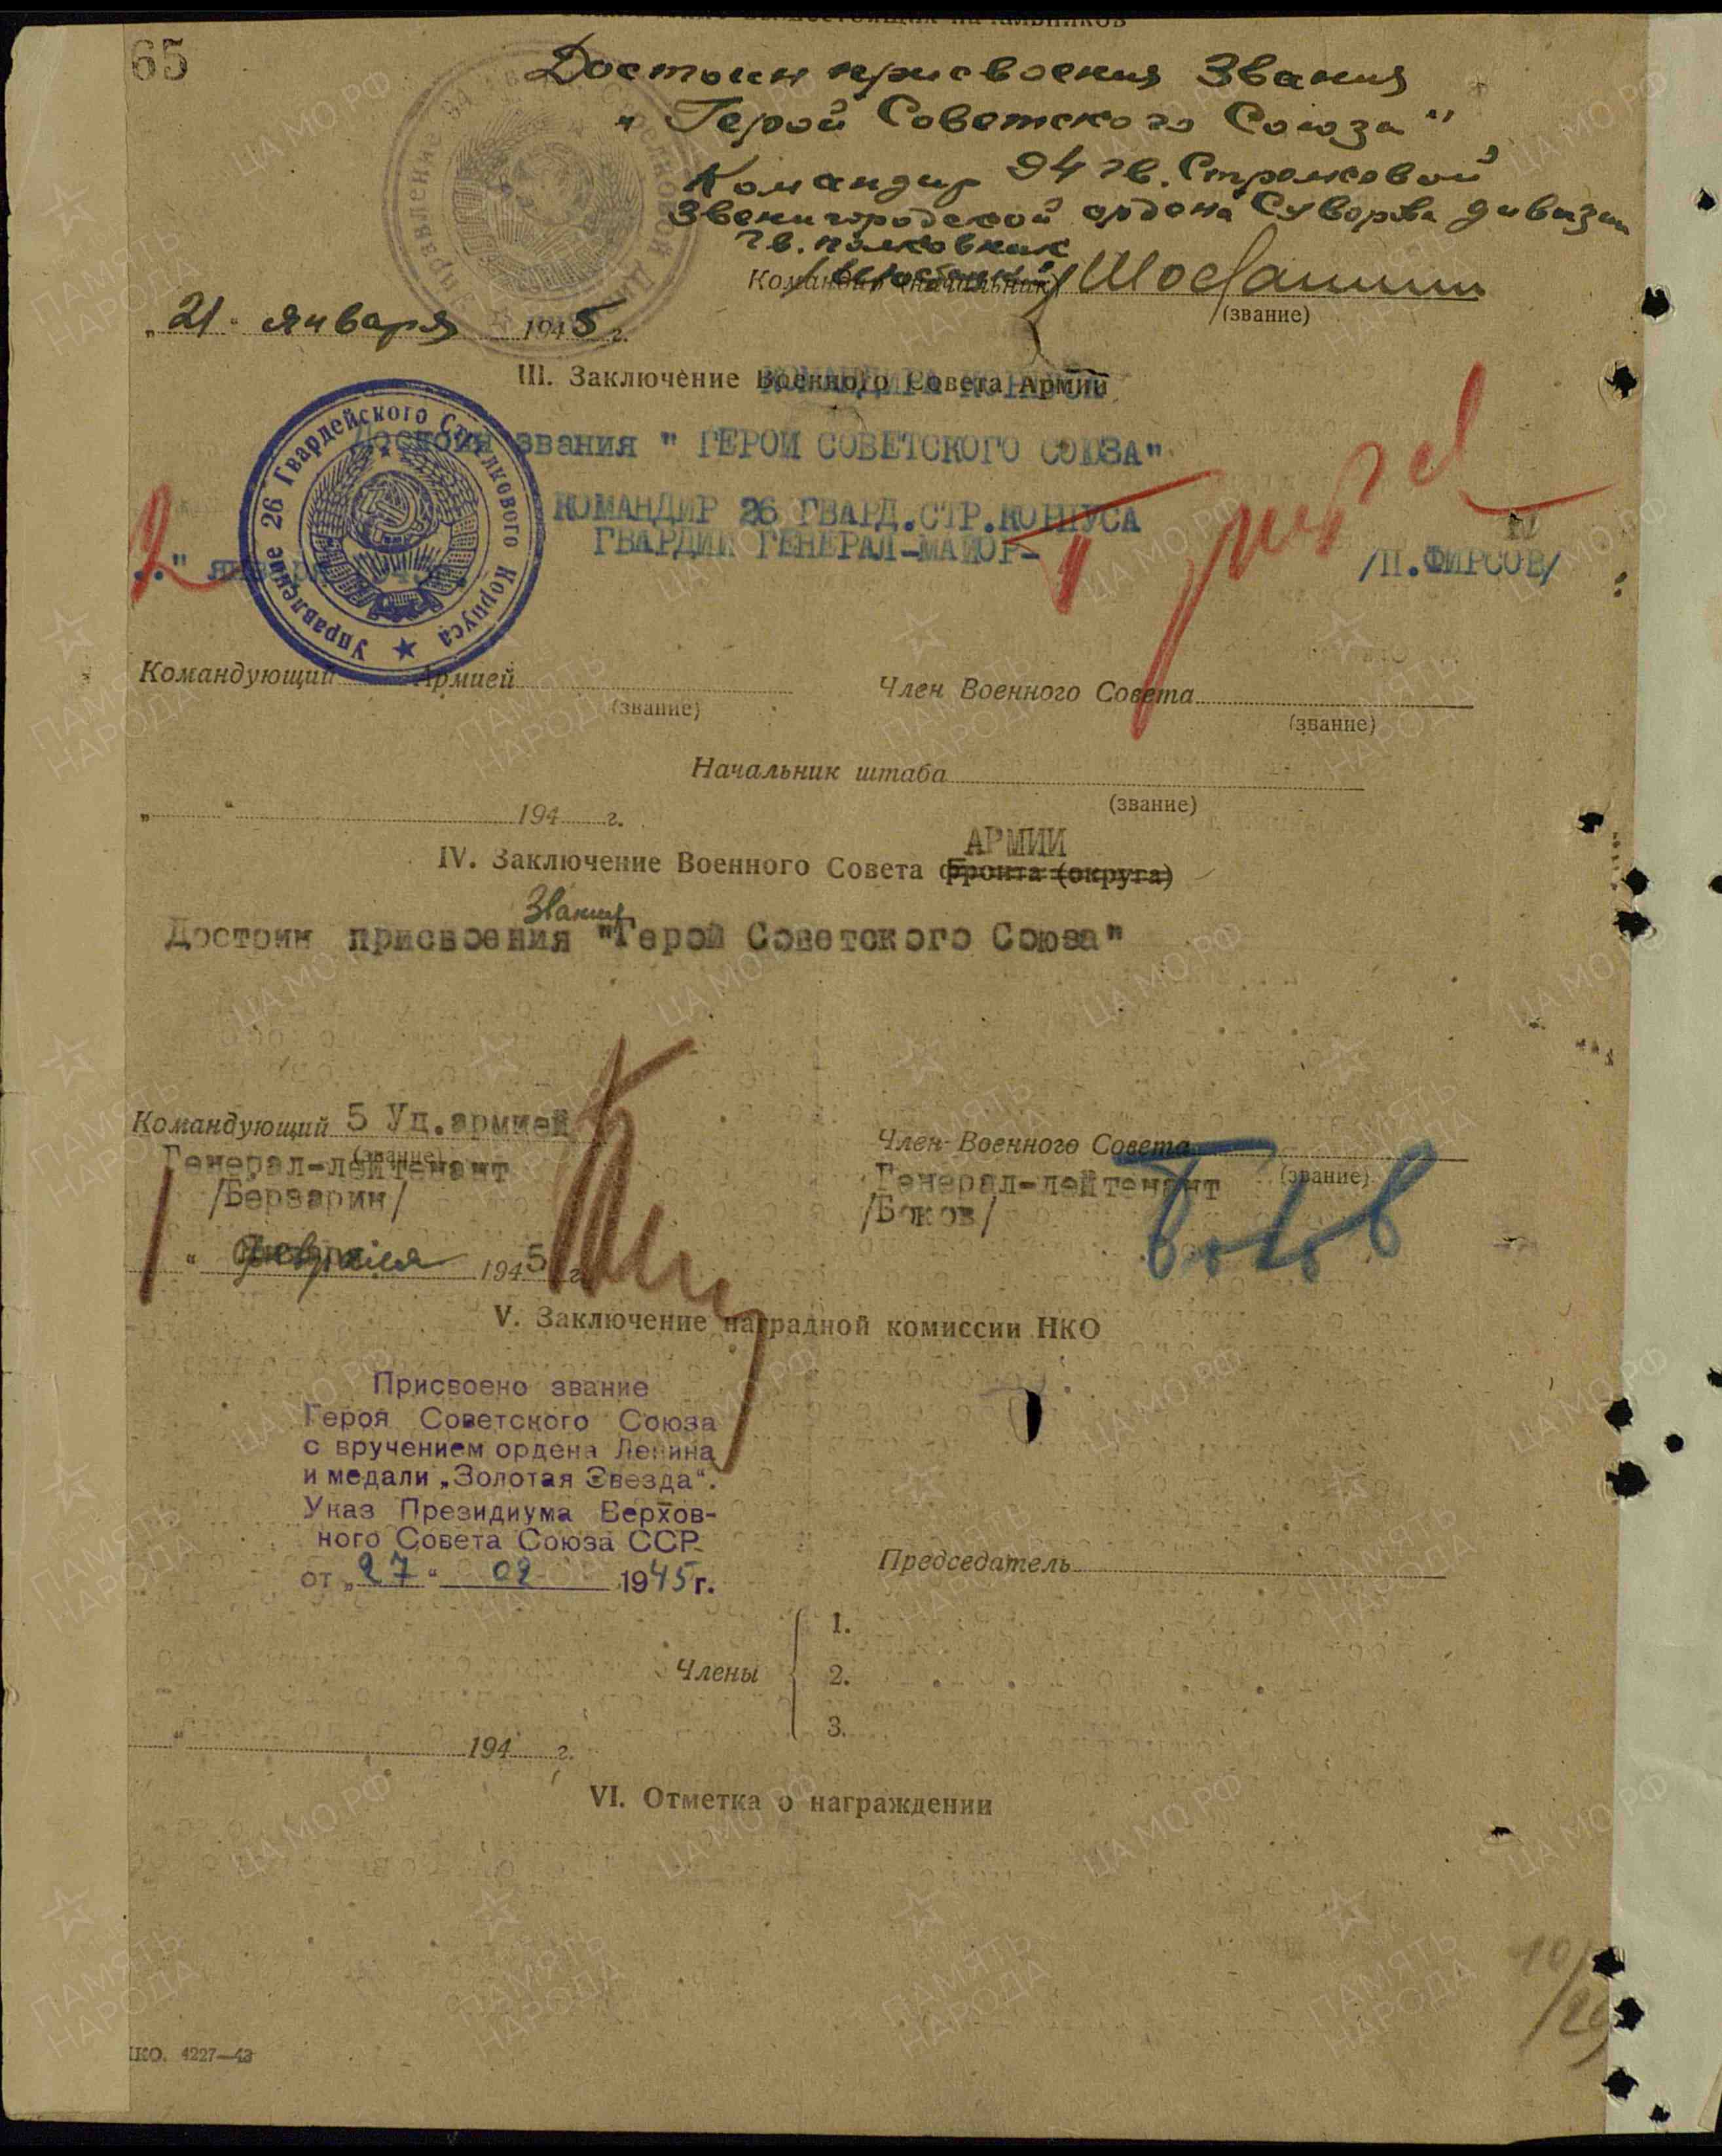 65
Достоин присвоения Звания
"Герой Советского Союза"
Командир 94 гв. Стрелковой
Звенигородской ордена Суворова дивизии
гв. полковник
Командир (начальник)
(звание)
"21" января 1945 г.
III. Заключение Военного Совета Армии
КОМАНДИРА КОРПУСА
Достоин звания "ГЕРОЙ СОВЕТСКОГО СОЮЗА"
КОМАНДИР 26 ГВАРД.СТР.КОРПУСА
ГВАРДИИ ГЕНЕРАЛ-МАЙОР-
/П.ФИРСОВ/
" января
Управление 26 Гвардейского Стрелкового Корпуса
Командующий Армией
(звание)
Член Военного Совета
(звание)
Начальник штаба
(звание)
" " 194 г.
АРМИИ
IV. Заключение Военного Совета фронта (округа)
Звания
Достоин присвоения "Герой Советского Союза"
Командующий 5 Уд.армией
(звание)
Генерал-лейтенант
/Берзарин/
Член Военного Совета
(звание)
Генерал-лейтенант
/Боков/
Боков
" февраля 1945 г.
V. Заключение наградной комиссии НКО
Присвоено звание
Героя Советского Союза
с вручением ордена Ленина
и медали „Золотая Звезда".
Указ Президиума Верхов-
ного Совета Союза ССР
от „27" 02 1945 г.
Председатель
Члены
1.
2.
3.
" 194 г.
VI. Отметка о награждении
НКО. 4227—43
ЦА МО РФ
ПАМЯТЬ
НАРОДА